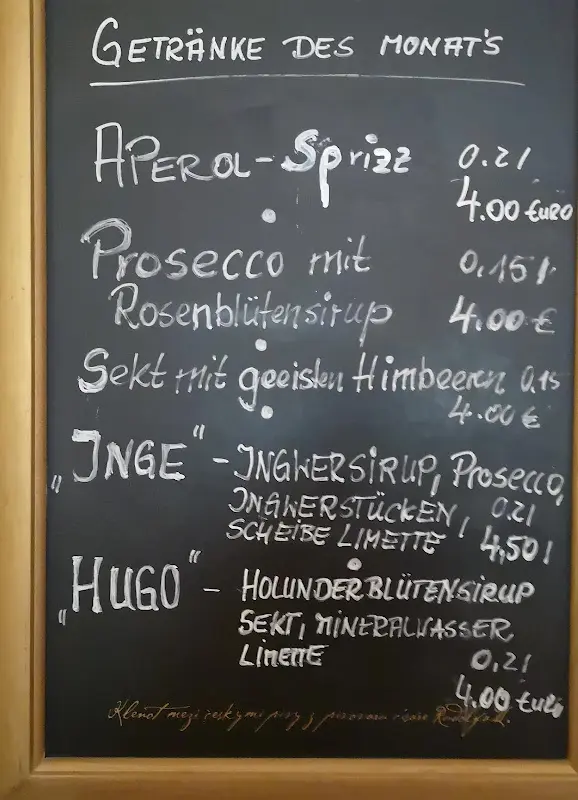 GETRÄNKE DES MONAT'S
APEROL-Sprizz 0.2l
4.00 Euro
Prosecco mit 0.15l
Rosenblütensirup 4.00 €
Sekt mit geeisten Himbeeren 0.15
4.00 €
„INGE" - INGWERSIRUP, Prosecco,
INGWERSTÜCKEN, 0.2l
SCHEIBE LIMETTE 4,50l
„HUGO" - HOLUNDERBLÜTENSIRUP
SEKT, MINERALWASSER,
LIMETTE 0,2l
4.00 Euro
Klenot mezi českými pivy z pivovaru císaře